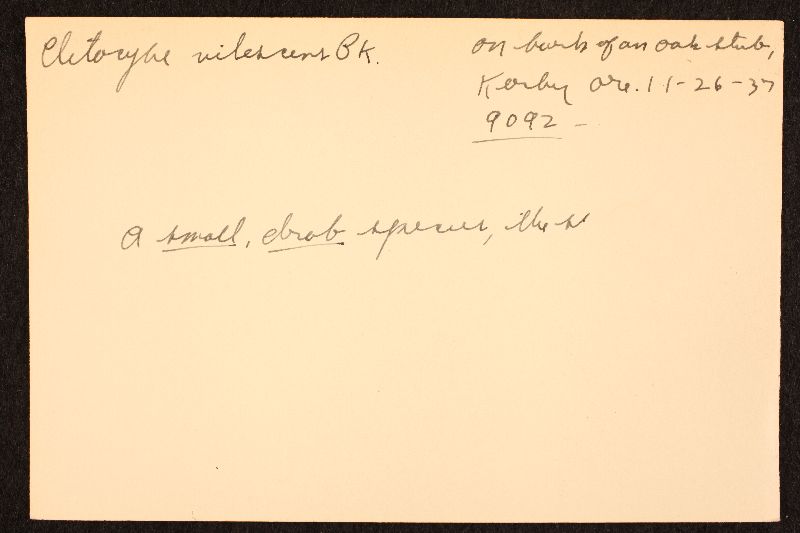 Clitocybe vilescens Pk.
on bark of an oak stub,
Kerby Ore. 11-26-37
9092 -
A small, drab species, the s